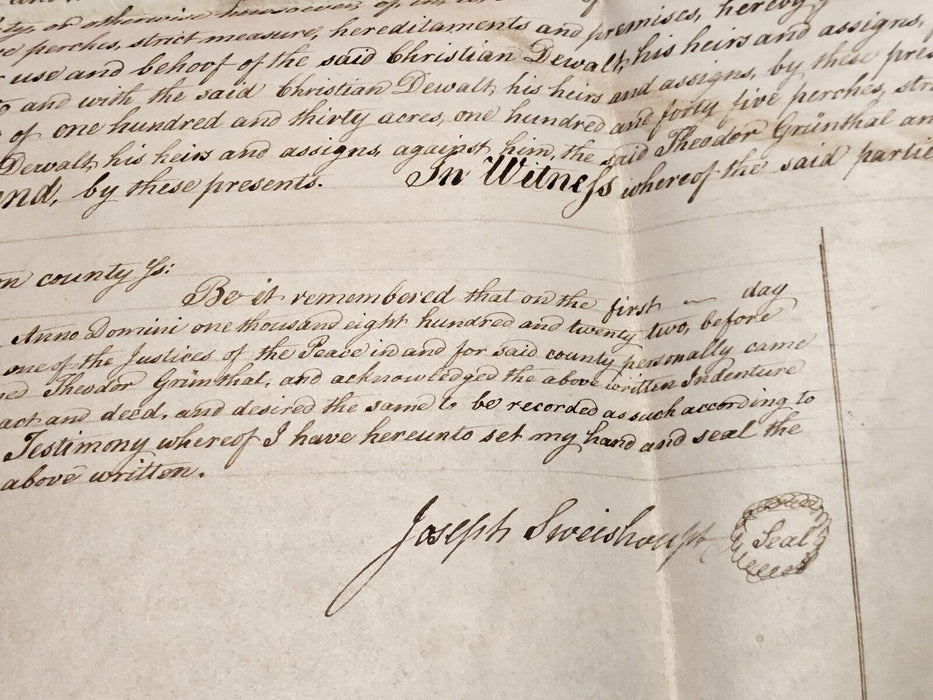 or otherwise howsoever, of in
perches, strict measure, hereditaments and premises, hereby
use and behoof of the said Christian Dewalt, his heirs and assigns,
and with the said Christian Dewalt, his heirs and assigns, by these pres
of one hundred and thirty acres, one hundred and forty five perches, str
Dewalt, his heirs and assigns, against him, the said Theodor Grünthal an
and, by these presents. In Witness whereof the said partie
on county ss:
Be it remembered that on the first — day
Anno Domini one thousand eight hundred and twenty two, before
one of the Justices of the Peace in and for said county personally came
ned Theodor Grünthal, and acknowledged the above written Indenture
act and deed, and desired the same to be recorded as such according to
Testimony whereof I have hereunto set my hand and seal the
above written.
Joseph Sweishoupt Seal